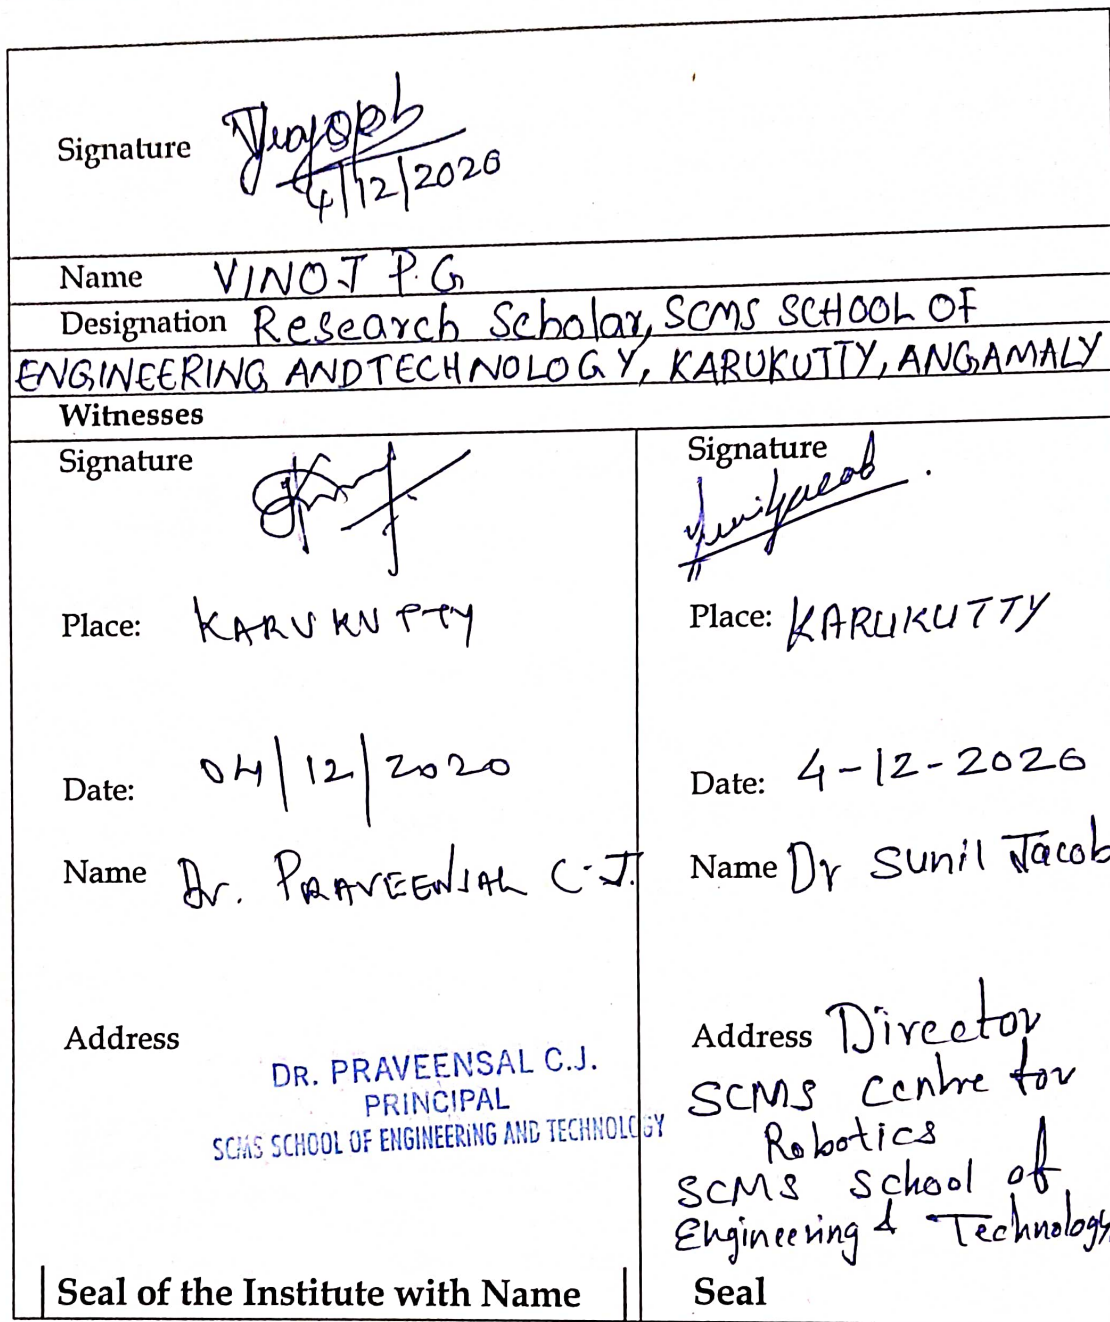 Signature
4/12/2020
Name VINOJ P.G
Designation Research Scholar, SCMS SCHOOL OF
ENGINEERING AND TECHNOLOGY, KARUKUTTY, ANGAMALY
Witnesses
Signature
Place: KARUKUTTY
Date: 04/12/2020
Name Dr. PRAVEENSAL C.J.
Address
DR. PRAVEENSAL C.J.
PRINCIPAL
SCMS SCHOOL OF ENGINEERING AND TECHNOLOGY
Seal of the Institute with Name
Signature
Sunil Jacob
Place: KARUKUTTY
Date: 4-12-2020
Name Dr Sunil Jacob
Address Director
SCMS Centre for
Robotics
SCMS School of
Engineering & Technology
Seal